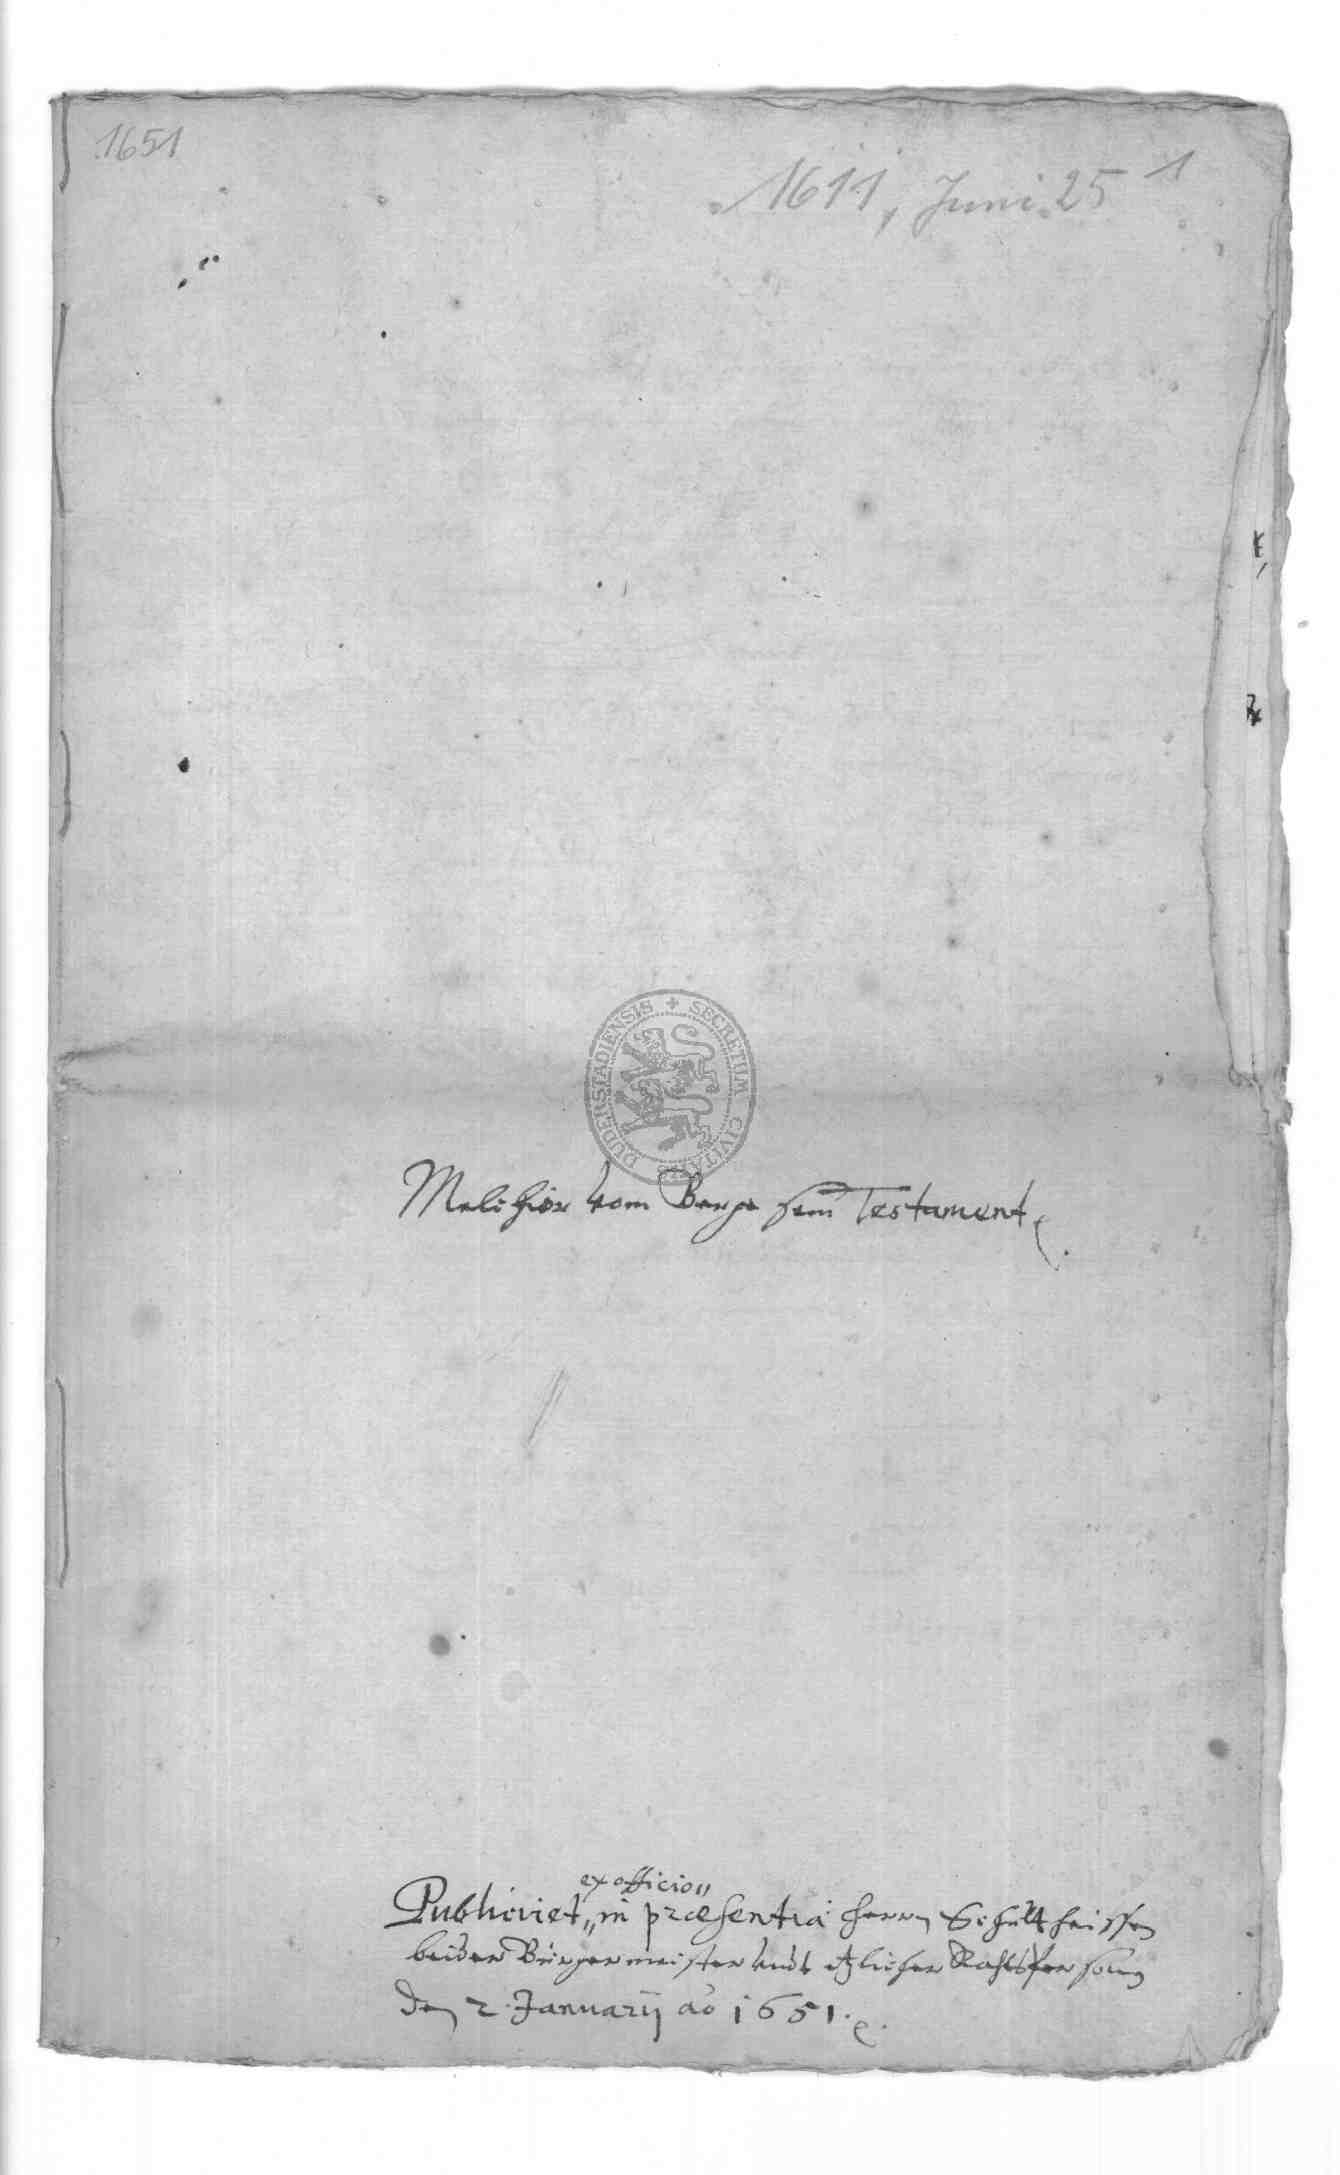 1651
1611, Juni 25
1
DUDERSTADIENSIS + SECRETUM CIVITATIS
Melchior vom Berge sein Testament
ex officio
Publiciret in præsentia herrn Schultheissen
beider Bürgermeister undt etzlicher Rahtspersonen
den 2. Januarij ao 1651.